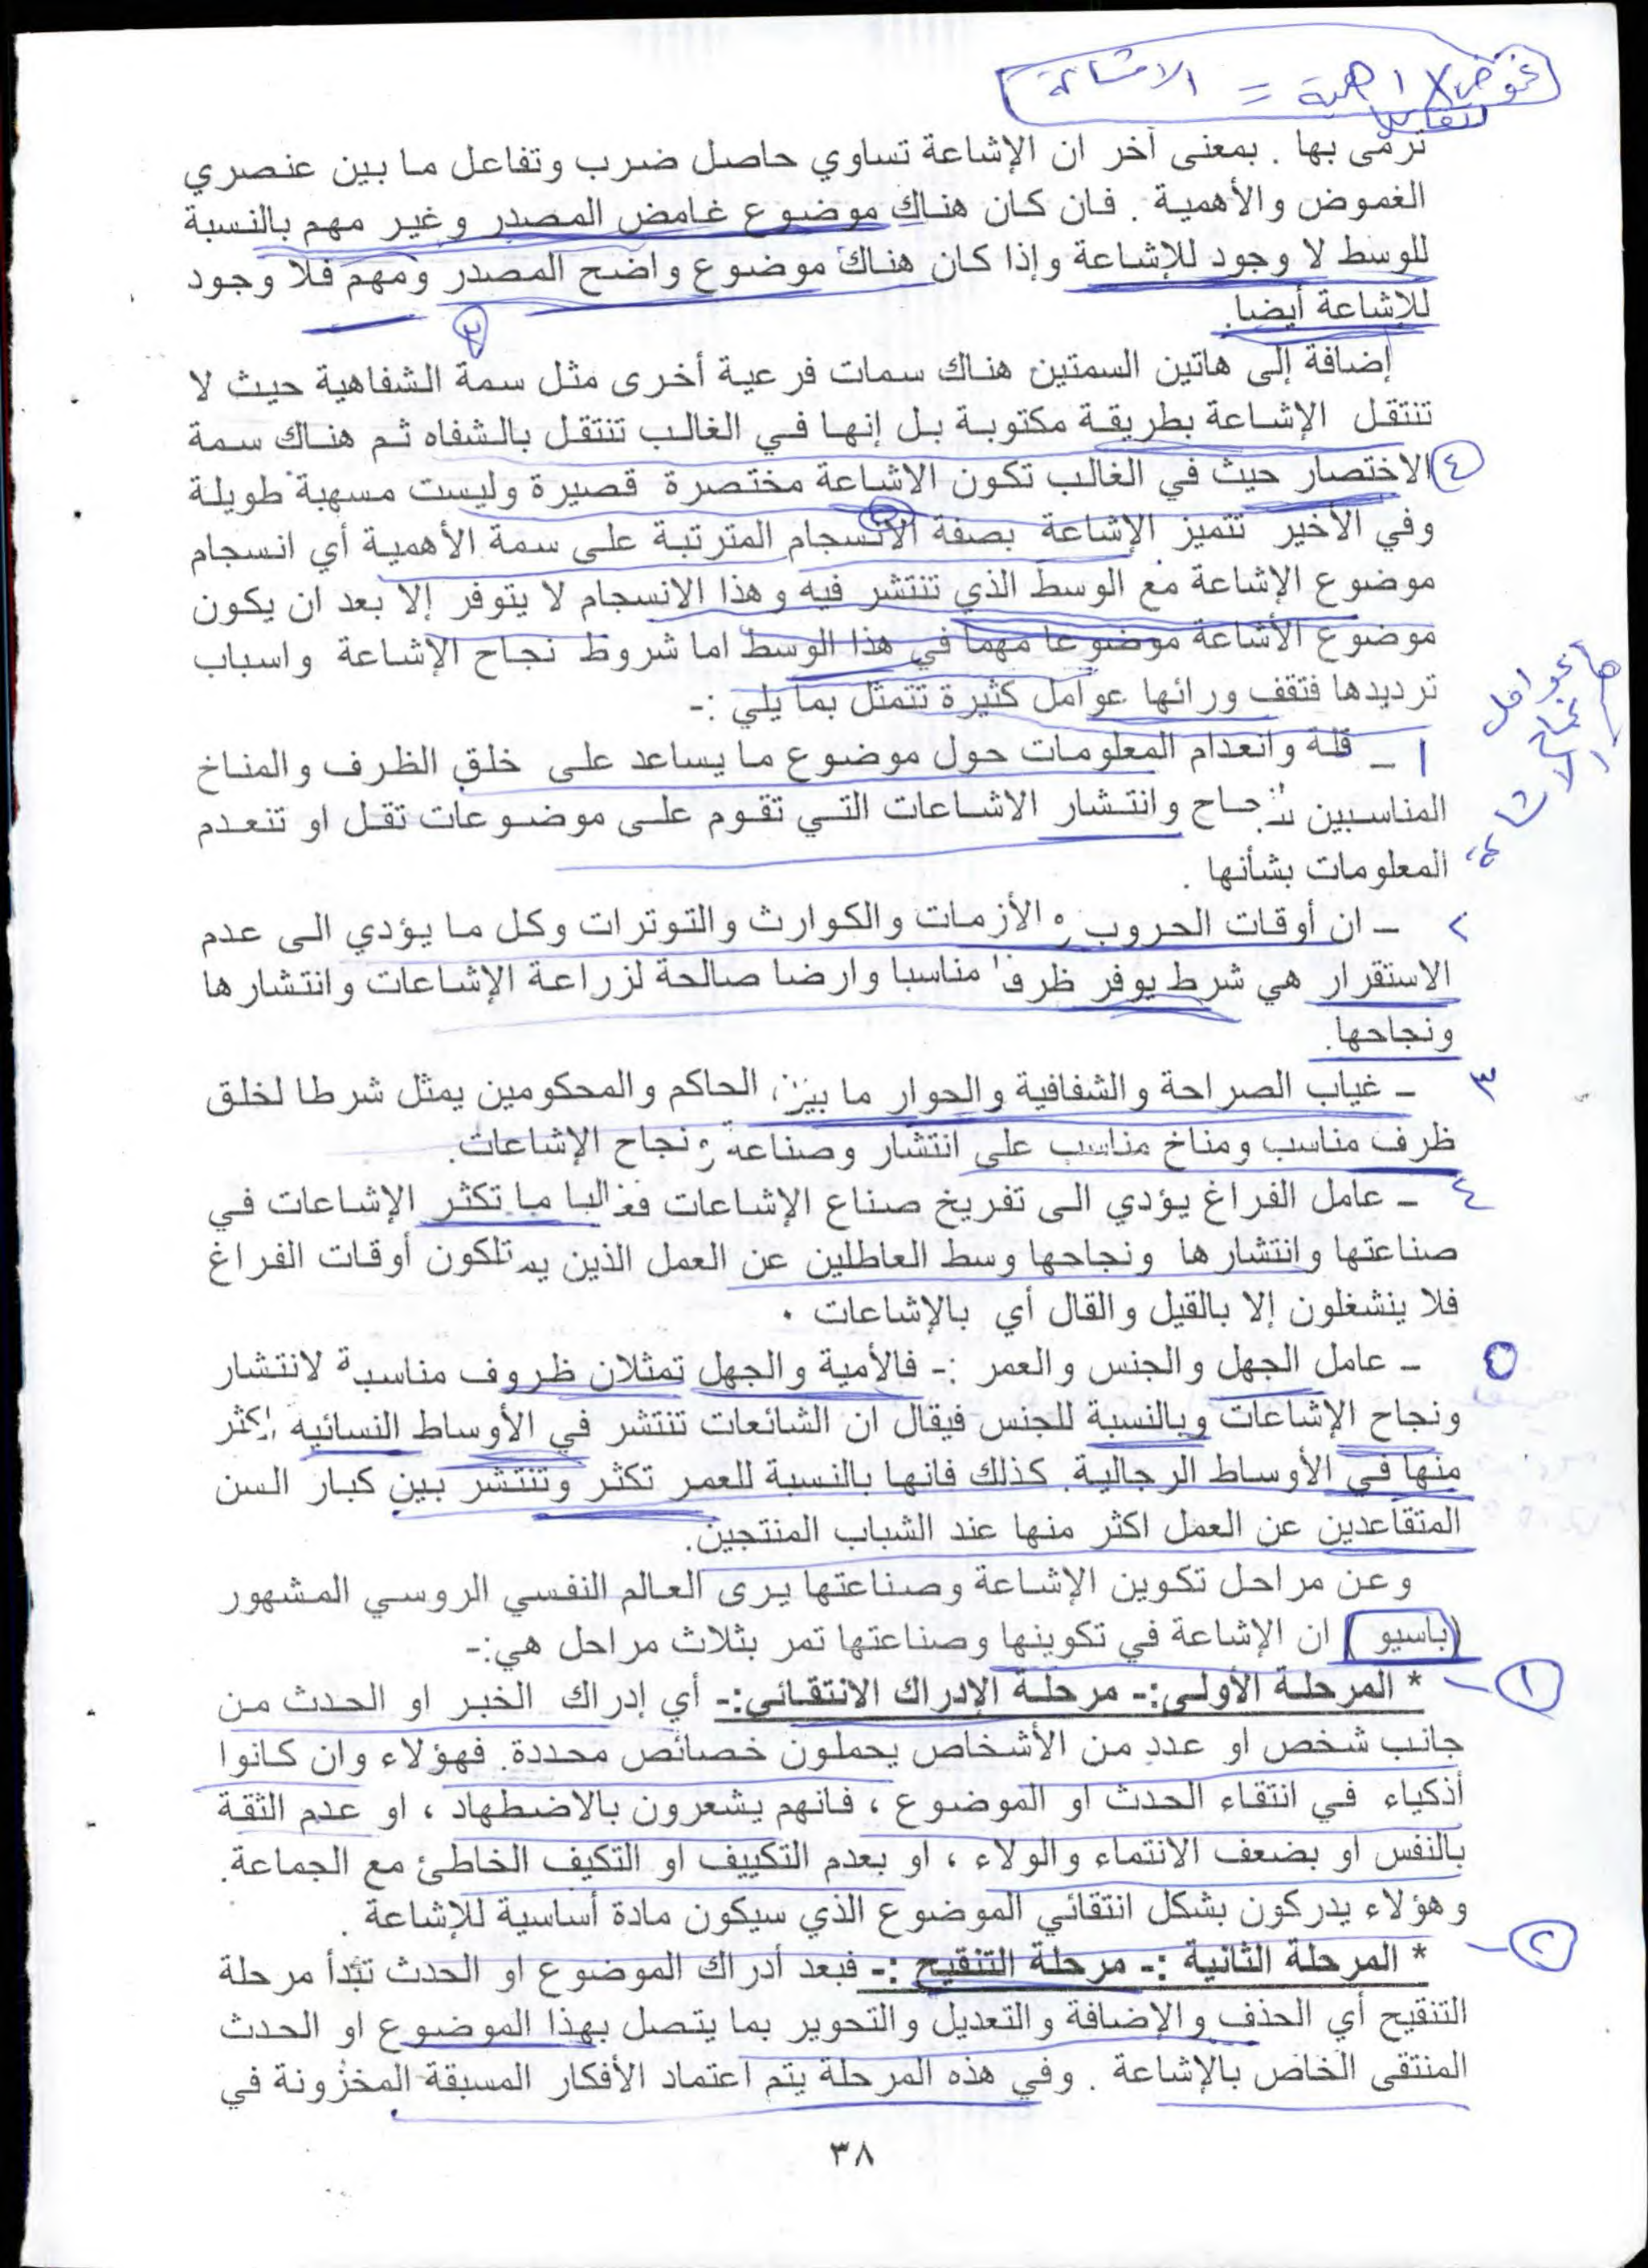 غموض X اهمية = الاشاعة
ترمى بها . بمعنى آخر ان الإشاعة تساوي حاصل ضرب وتفاعل ما بين عنصري
الغموض والأهمية . فان كان هناك موضوع غامض المصدر وغير مهم بالنسبة
للوسط لا وجود للإشاعة وإذا كان هناك موضوع واضح المصدر ومهم فلا وجود
للإشاعة أيضا.
٣
إضافة إلى هاتين السمتين هناك سمات فرعية أخرى مثل سمة الشفاهية حيث لا
تنتقل الإشاعة بطريقة مكتوبة بل إنها في الغالب تنتقل بالشفاه ثم هناك سمة
٤ الاختصار حيث في الغالب تكون الاشاعة مختصرة قصيرة وليست مسهبة طويلة
وفي الأخير تتميز الإشاعة بصفة الانسجام المترتبة على سمة الأهمية أي انسجام
موضوع الإشاعة مع الوسط الذي تنتشر فيه وهذا الانسجام لا يتوفر إلا بعد ان يكون
موضوع الأشاعة موضوعا مهما في هذا الوسط اما شروط نجاح الإشاعة واسباب
ترديدها فتقف ورائها عوامل كثيرة تتمثل بما يلي :-
١ - قلة وانعدام المعلومات حول موضوع ما يساعد على خلق الظرف والمناخ
المناسبين لنجاح وانتشار الاشاعات التي تقوم على موضوعات تقل او تنعدم
المعلومات بشأنها .
٢ - ان أوقات الحروب والأزمات والكوارث والتوترات وكل ما يؤدي الى عدم
الاستقرار هي شرط يوفر ظرفا مناسبا وارضا صالحة لزراعة الإشاعات وانتشارها
ونجاحها.
٣ - غياب الصراحة والشفافية والحوار ما بين الحاكم والمحكومين يمثل شرطا لخلق
ظرف مناسب ومناخ مناسب على انتشار وصناعة ونجاح الإشاعات.
٤ - عامل الفراغ يؤدي الى تفريخ صناع الإشاعات فغالبا ما تكثر الإشاعات في
صناعتها وانتشارها ونجاحها وسط العاطلين عن العمل الذين يمتلكون أوقات الفراغ
فلا ينشغلون إلا بالقيل والقال أي بالإشاعات .
٥ - عامل الجهل والجنس والعمر :- فالأمية والجهل تمثلان ظروف مناسبة لانتشار
ونجاح الإشاعات وبالنسبة للجنس فيقال ان الشائعات تنتشر في الأوساط النسائيه اكثر
منها في الأوساط الرجالية. كذلك فانها بالنسبة للعمر تكثر وتنتشر بين كبار السن
المتقاعدين عن العمل اكثر منها عند الشباب المنتجين.
وعن مراحل تكوين الإشاعة وصناعتها يرى العالم النفسي الروسي المشهور
(باسيو) ان الإشاعة في تكوينها وصناعتها تمر بثلاث مراحل هي:-
١ - * المرحلة الأولى:- مرحلة الإدراك الانتقائي:- أي إدراك الخبر او الحدث من
جانب شخص او عدد من الأشخاص يحملون خصائص محددة. فهؤلاء وان كانوا
أذكياء في انتقاء الحدث او الموضوع ، فانهم يشعرون بالاضطهاد ، او عدم الثقة
بالنفس او بضعف الانتماء والولاء ، او بعدم التكييف او التكيف الخاطئ مع الجماعة.
وهؤلاء يدركون بشكل انتقائي الموضوع الذي سيكون مادة أساسية للإشاعة .
٢ - * المرحلة الثانية :- مرحلة التنقيح :- فبعد أدراك الموضوع او الحدث تبدأ مرحلة
التنقيح أي الحذف والإضافة والتعديل والتحوير بما يتصل بهذا الموضوع او الحدث
المنتقى الخاص بالإشاعة . وفي هذه المرحلة يتم اعتماد الأفكار المسبقة المخزونة في
٣٨